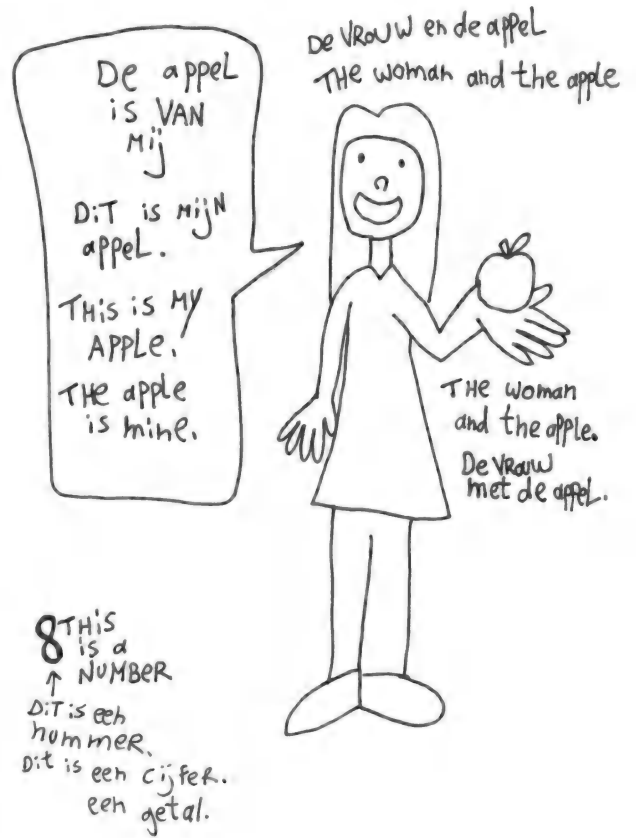 De VROUW en de appel
THE woman and the apple
De appel
is VAN
Mij
DiT is MijN
appel.
THIS is MY
APPLE.
THE apple
is mine.
THE woman
and the apple.
De VROUW
met de appel.
8 THIS
is a
NUMBER
DiT is een
nummer.
Dit is een cijfer.
een getal.